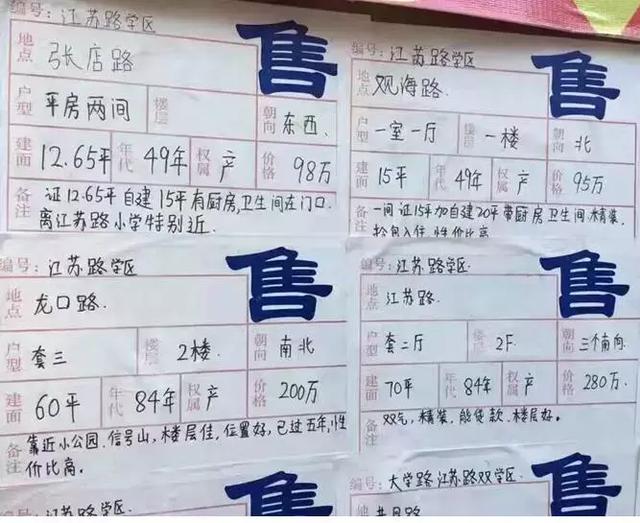 编号：江苏路学区
地点 张店路
户型 平房两间 楼层 朝向 东西
建面 12.65平 年代 49年 权属 产 价格 98万
备注 证12.65平自建15平有厨房,卫生间在门口.
离江苏路小学特别近.
售
编号：江苏路学区
地点 观海路
户型 一室一厅 楼层 一楼 朝向 北
建面 15平 年代 49年 权属 产 价格 95万
备注 一间证15平加自建20平带厨房卫生间.精装,
拎包入住,性价比高
售
编号：江苏路学区
地点 龙口路.
户型 套三 楼层 2楼. 朝向 南北
建面 60平 年代 84年 权属 产 价格 200万
备注 靠近小公园.信号山,楼层佳,位置好,已过五年,性
价比高。
售
编号：江苏路学区
地点 江苏路.
户型 套二厅 楼层 2F. 朝向 三个南向
建面 70平 年代 84年 权属 产 价格 280万
备注 双气,精装,能贷款.楼层好.
售
编号：江苏路学区
售
编号：大学路江苏路双学区
售